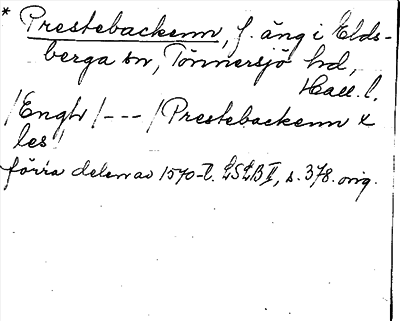 * Prestebackenn, f. äng i Elds-
berga sn, Tönnersjö hd,
Hall. l.
/Engh/ --- /Prestebackenn x
les/
förra delen av 1570-t. LSLB II, s. 378. orig.